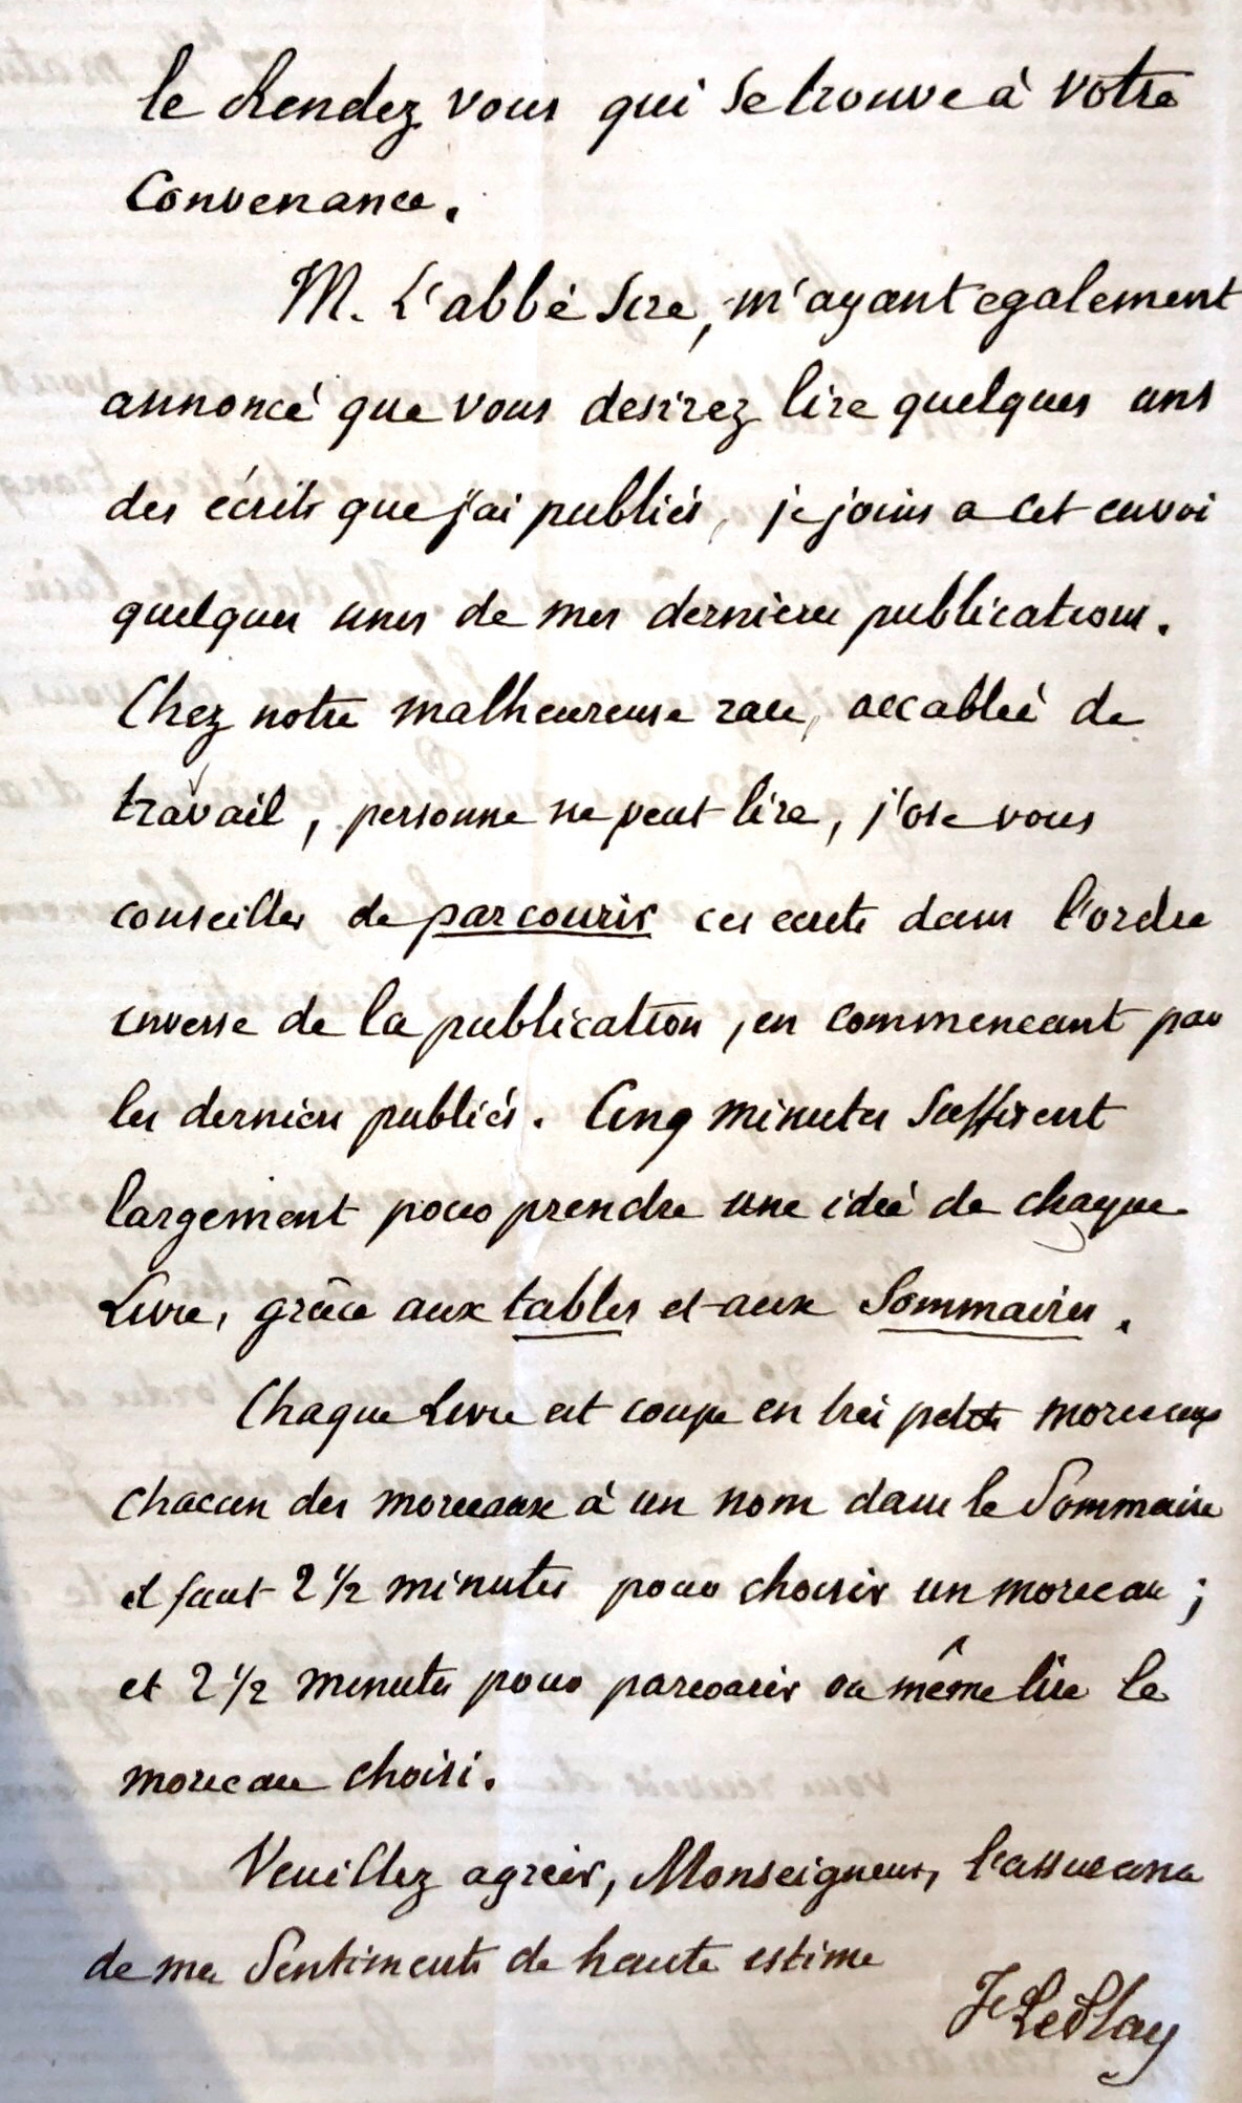 le Rendez vous qui se trouve à votre
Convenance.
M. L'abbé Sire, m'ayant egalement
annoncé que vous desirez lire quelques uns
des écrits que j'ai publiés, je joins a cet envoi
quelques unes de mes dernieres publications.
Chez notre malheureuse race, accablée de
travail, personne ne peut lire, j'ose vous
conseiller de parcourir ces ecrits dans l'ordre
inverse de la publication, en commencant par
les derniers publiés. Cinq minutes suffisent
largement pour prendre une idée de chaque
Livre, grâce aux tables et aux Sommaires.
Chaque Livre est coupe en très petits morceaux
chacun des morceaux à un nom dans le Sommaire
il faut 2 1/2 minutes pour choisir un morceau ;
et 2 1/2 minutes pour parcourir ou même lire le
morceau choisi.
Veuillez agréer, Monseigneur, l'assurance
de mes Sentiments de haute estime
F Le Play